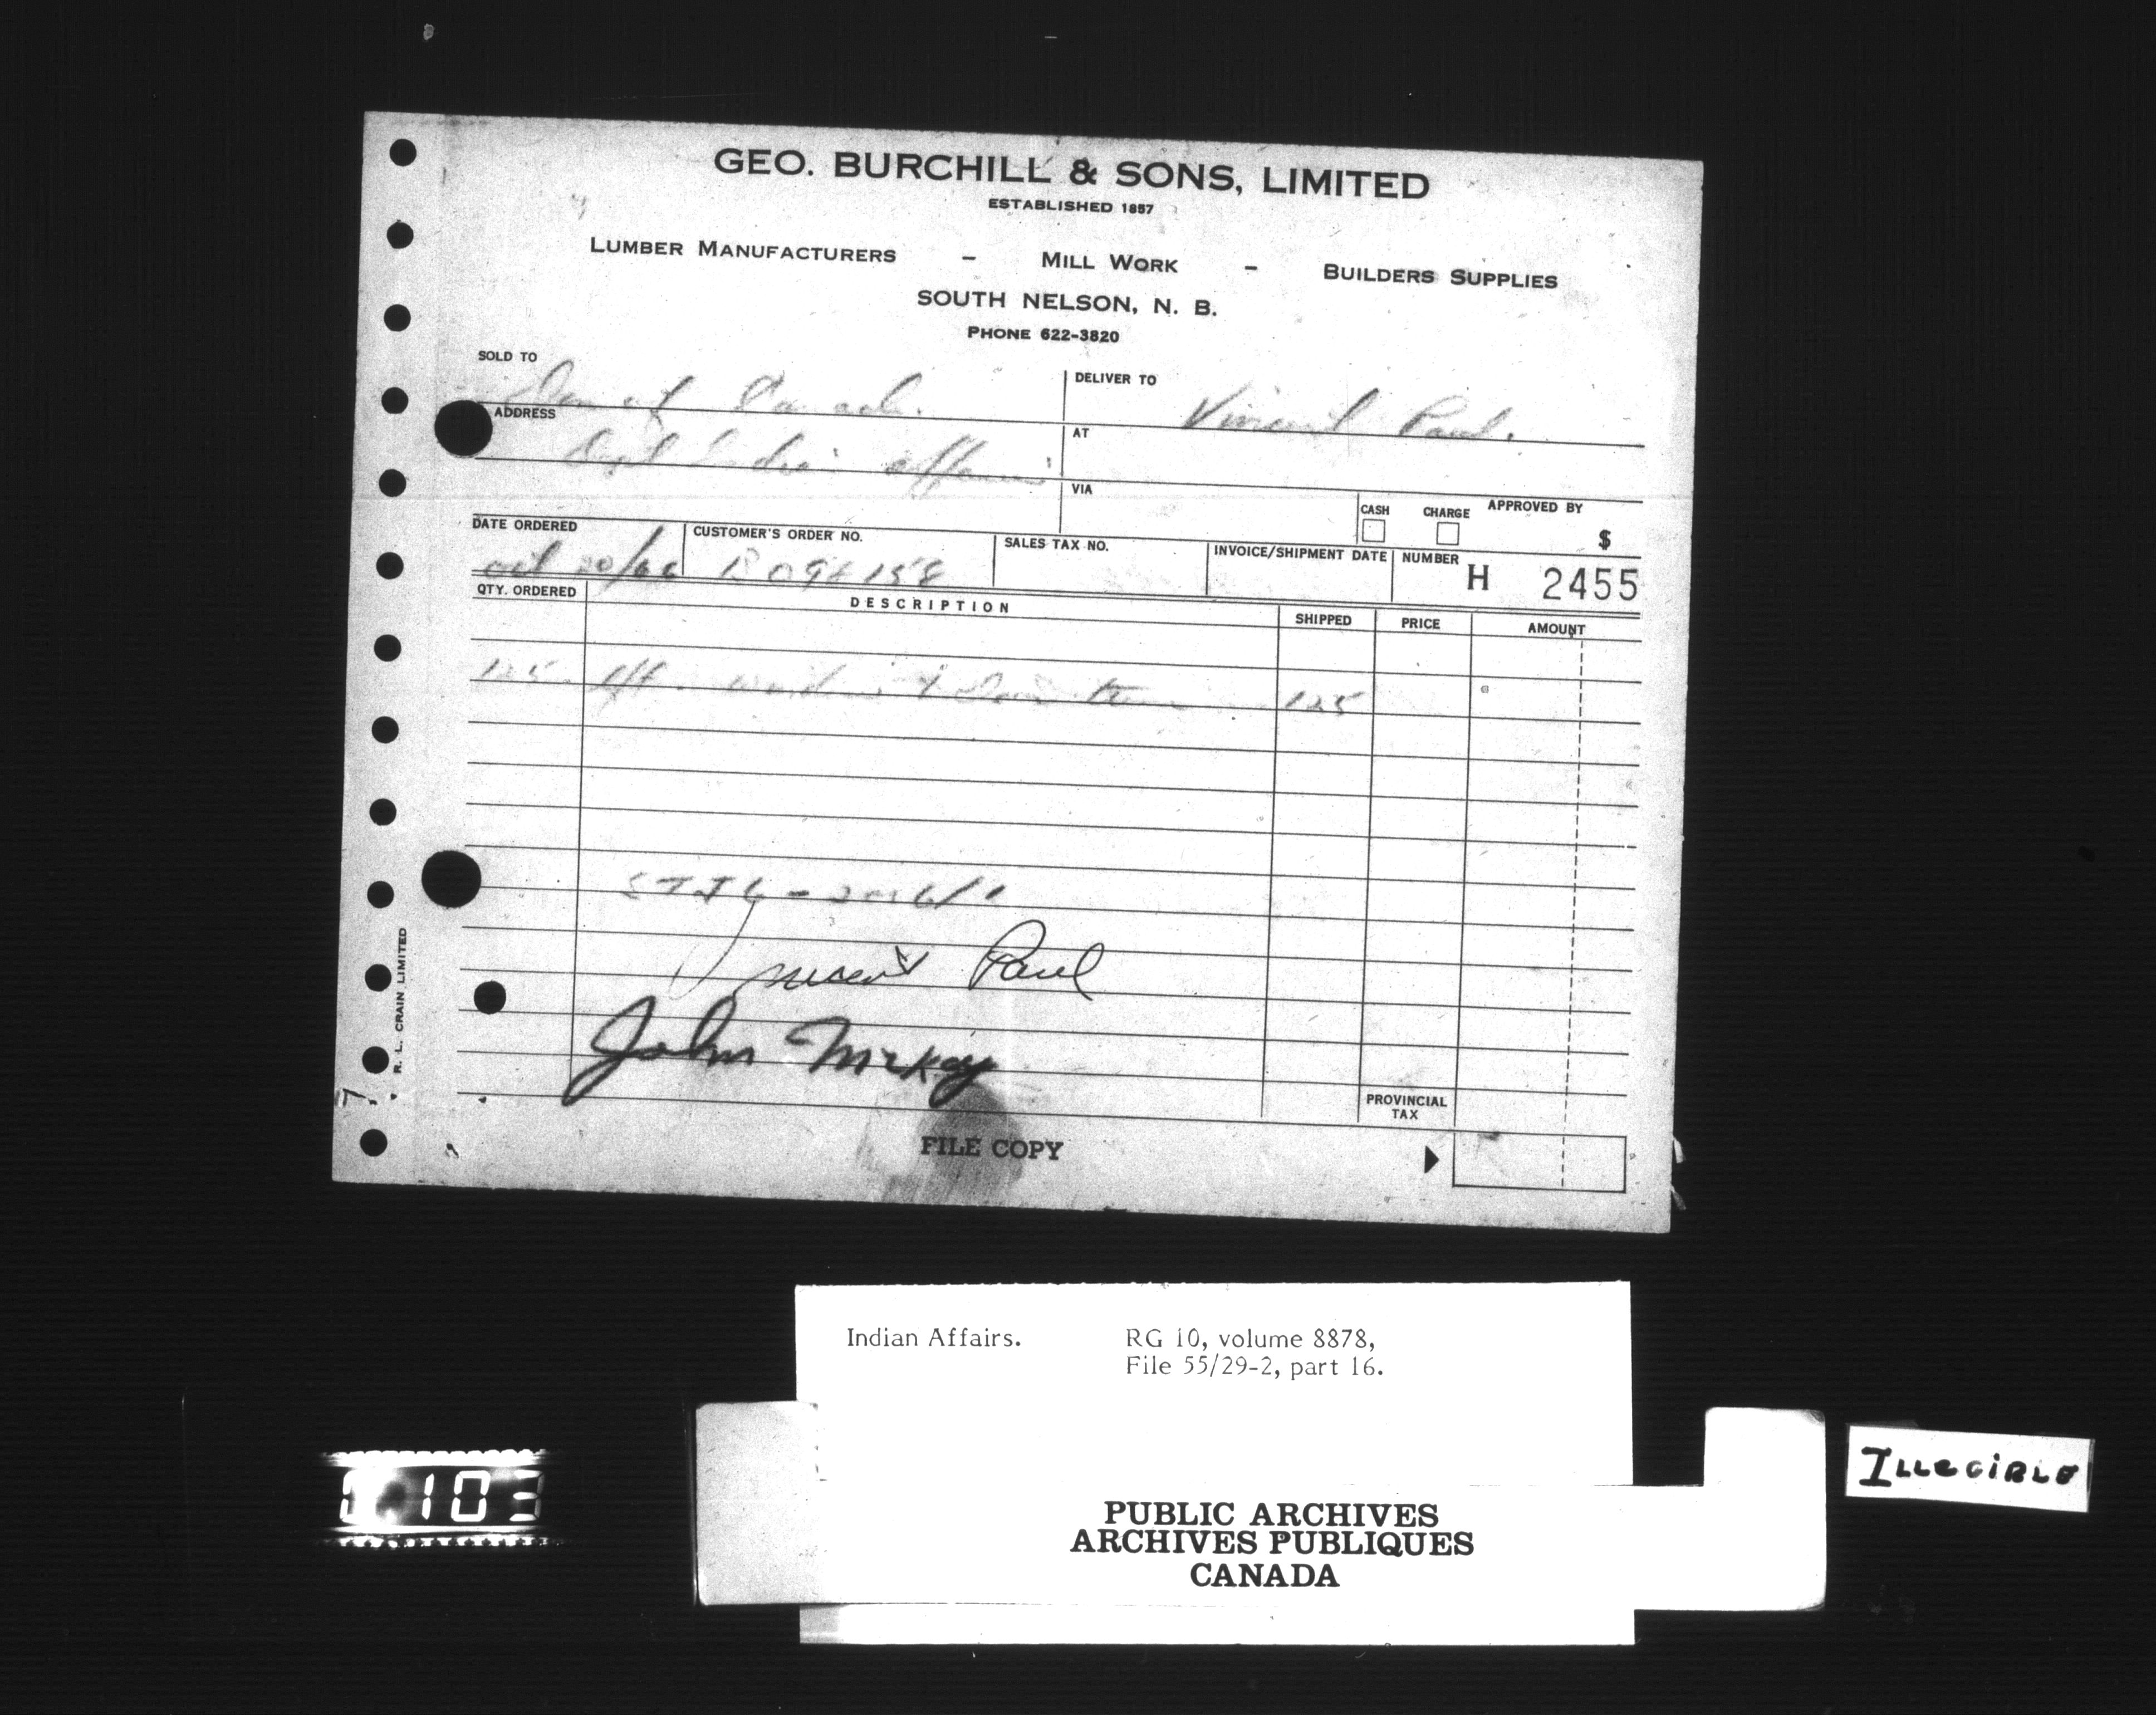 GEO. BURCHILL & SONS, LIMITED
ESTABLISHED 1857
LUMBER MANUFACTURERS - MILL WORK - BUILDERS SUPPLIES
SOUTH NELSON, N. B.
PHONE 622-3820
SOLD TO
DELIVER TO Vincent Paul.
ADDRESS
AT
Dept Indian Affairs
VIA
CASH CHARGE APPROVED BY
$
DATE ORDERED CUSTOMER'S ORDER NO. SALES TAX NO. INVOICE/SHIPMENT DATE NUMBER H 2455
QTY. ORDERED DESCRIPTION SHIPPED PRICE AMOUNT
125 125
Vincent Paul
John McKay
PROVINCIAL
TAX
FILE COPY
R. L. CRAIN LIMITED
Indian Affairs. RG 10, volume 8878,
File 55/29-2, part 16.
103
PUBLIC ARCHIVES
ARCHIVES PUBLIQUES
CANADA
ILLEGIBLE